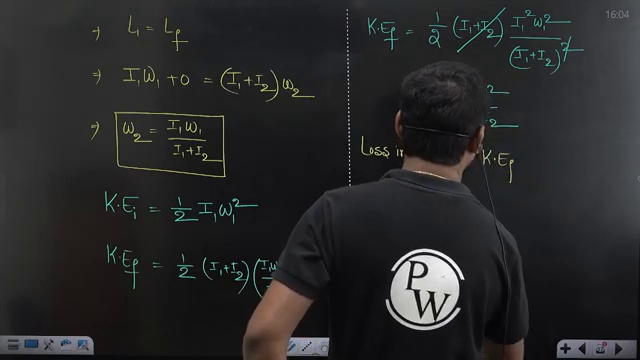 ⇒ L₁ = L_f
⇒ I₁W₁ + 0 = (I₁+I₂)ω₂
⇒ ω₂ = I₁W₁ / I₁+I₂
K·Eᵢ = 1/2 I₁ω₁²
K·E_f = 1/2 (I₁+I₂)
K·E_f = 1/2 (I₁+I₂) I₁²ω₁² / (I₁+I₂)²
Loss
K·E_f
PW
16:04